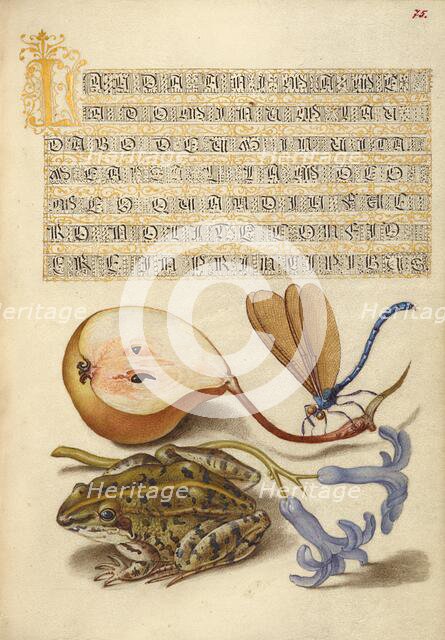 75.
LAUDA ANIMA ME
A DOMINUM LAU
DABO DEUM IN UITA
MEA PSALLAM DEO
MEO QUANDIU FUE
RO NOLITE CONFID
ERE IN PRINCIPIBUS
Heritage
Heritage
Heritage
Heritage
Heritage
Heritage